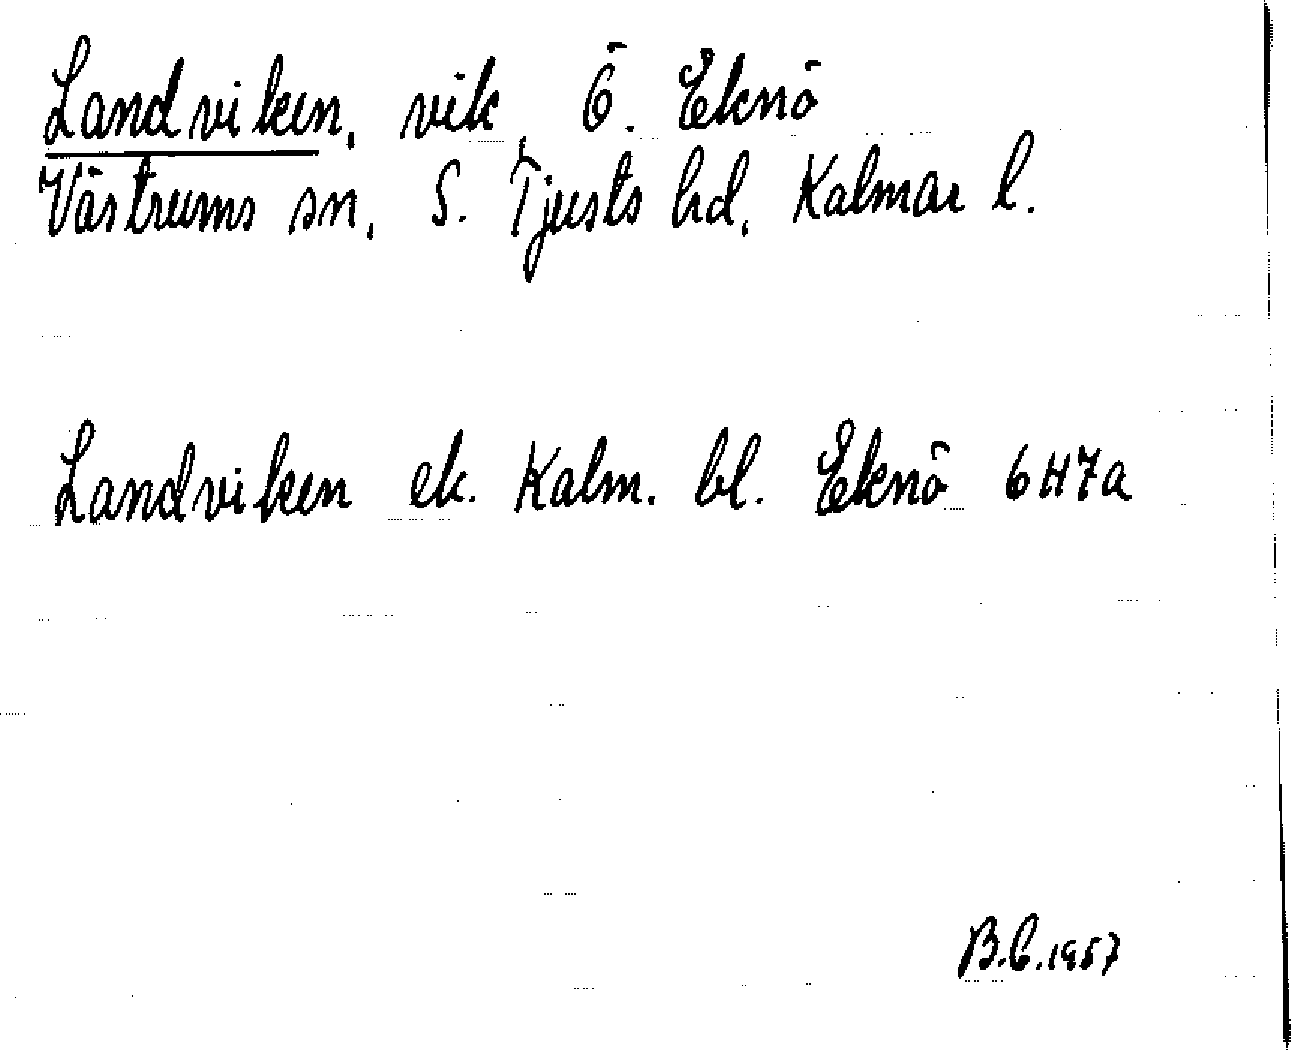 Landviken, vik, Ö. Eknö
Västrums sn, S. Tjusts hd, Kalmar l.
Landviken ek. Kalm. bl. Eknö 6H7a
B.C.1957